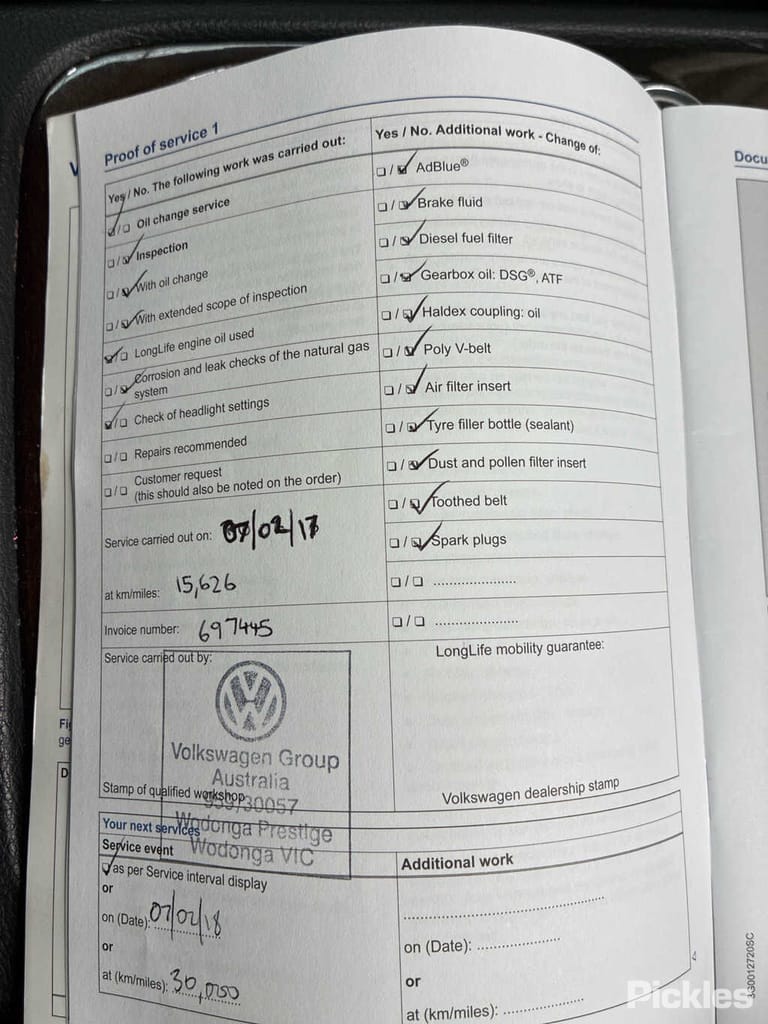 Proof of service 1
Yes / No. The following work was carried out:
☑/☐ Oil change service
☐/☑ Inspection
☐/☑ With oil change
☐/☑ With extended scope of inspection
☑/☐ LongLife engine oil used
☐/☑ Corrosion and leak checks of the natural gas
system
☑/☐ Check of headlight settings
☐/☐ Repairs recommended
☐/☐ Customer request
(this should also be noted on the order)
Service carried out on: 07/02/17
at km/miles: 15,626
Invoice number: 697445
Service carried out by:
Volkswagen Group
Australia
30057
Wodonga Prestige
Wodonga VIC
Stamp of qualified workshop
Yes / No. Additional work - Change of:
☐/☑ AdBlue®
☐/☑ Brake fluid
☐/☑ Diesel fuel filter
☐/☑ Gearbox oil: DSG®, ATF
☐/☑ Haldex coupling: oil
☐/☑ Poly V-belt
☐/☑ Air filter insert
☐/☑ Tyre filler bottle (sealant)
☐/☑ Dust and pollen filter insert
☐/☑ Toothed belt
☐/☑ Spark plugs
☐/☐ .....................
☐/☐ .....................
LongLife mobility guarantee:
Volkswagen dealership stamp
Your next services
Service event
☑ as per Service interval display
or
on (Date): 07/02/18
or
at (km/miles): 30,000
Additional work
on (Date): .....................
or
at (km/miles): .....................
4
Docu
Fi
ge
D
V
Pickles